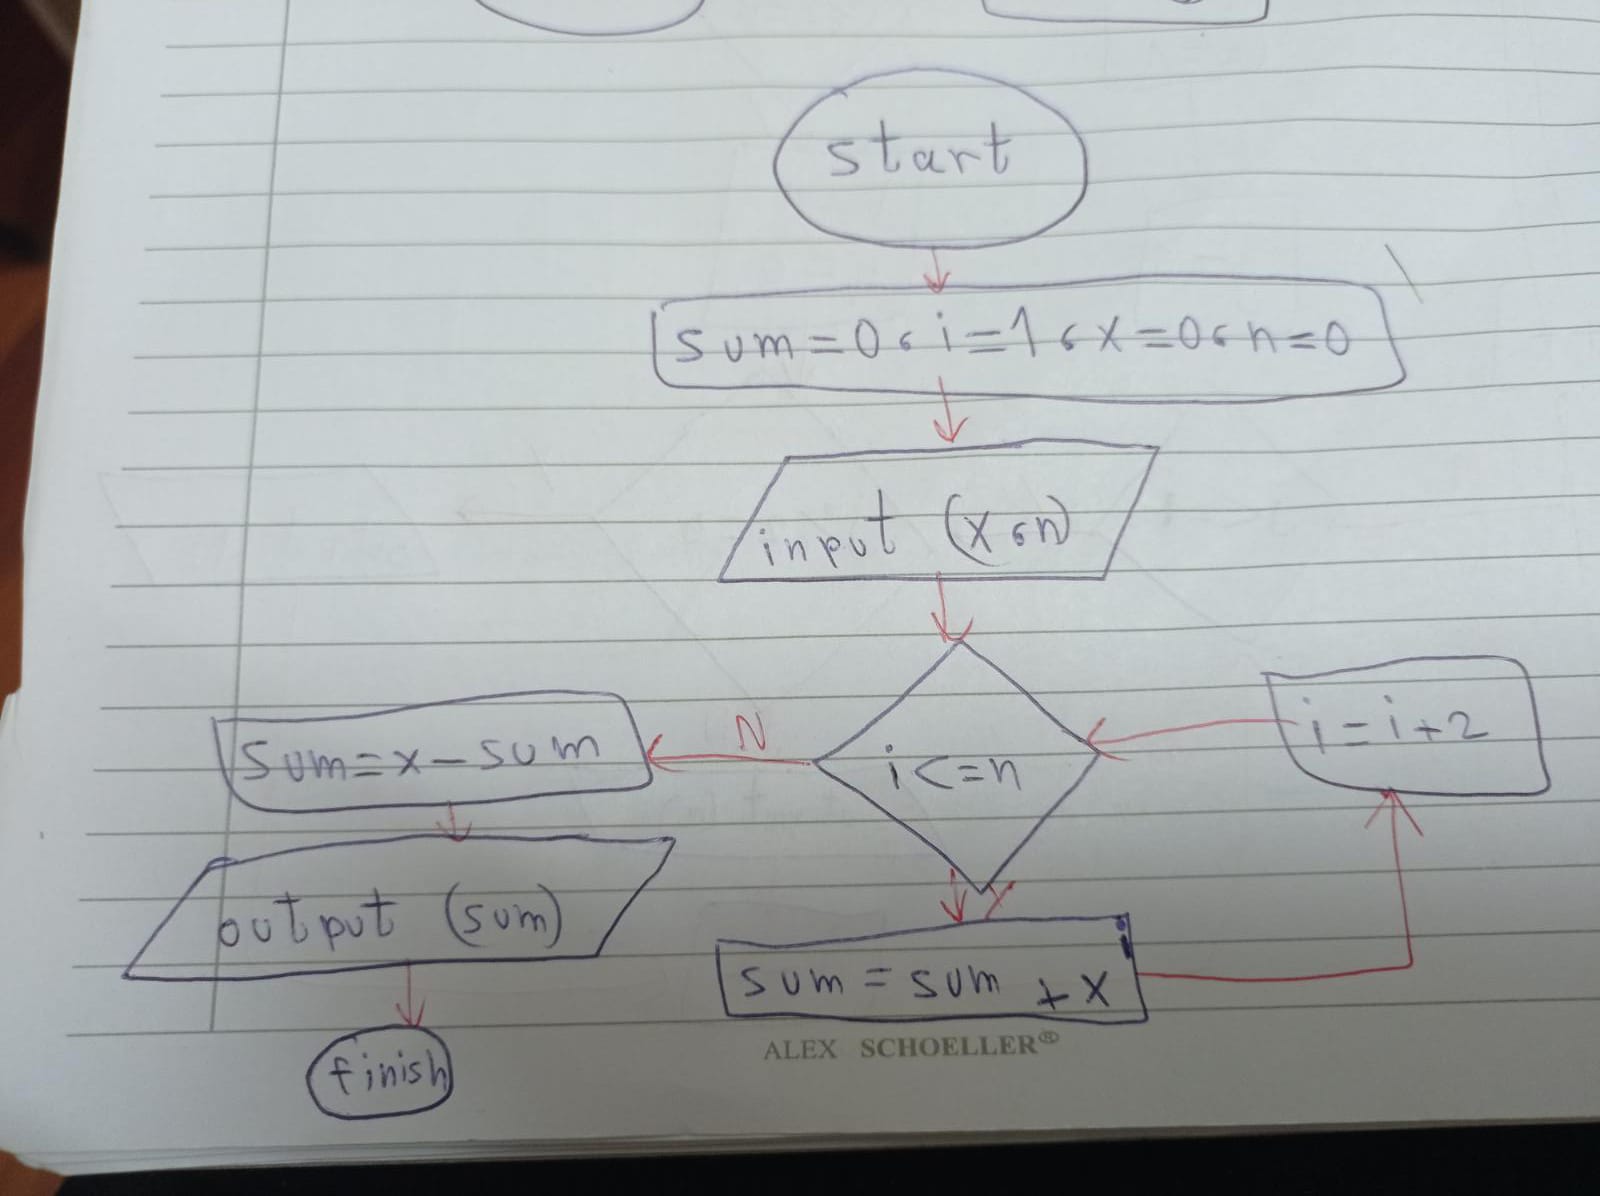 start
sum=0، i=1، x=0، n=0
input (x، n)
i<=n
N
Y
i=i+2
sum=x-sum
output (sum)
sum = sum + x
finish
ALEX SCHOELLER®